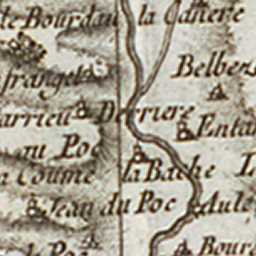 de Bourdau la Canere
frangel
Belbeze
arrieu Derriere
Entar
au Poc
la Coume la Bache L
Jean du Poc Aulé
le Poc Bourg